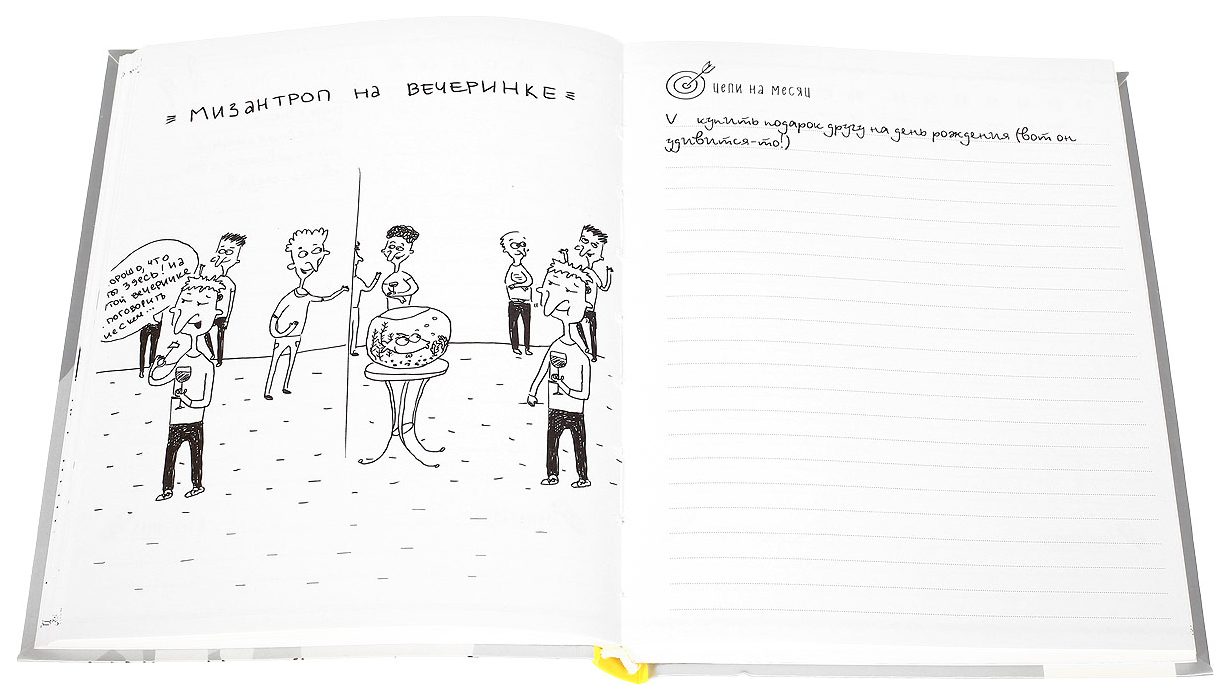 МИЗАНТРОП НА ВЕЧЕРИНКЕ
ОРОШО, ЧТО
ЗДЕСЬ! НА
ТОЙ ВЕЧЕРИНКЕ
ПОГОВОРИТЬ
НЕ С КЕМ...
ЦЕЛИ НА МЕСЯЦ
V купить подарок другу на день рождения (вот он
удивится-то!)